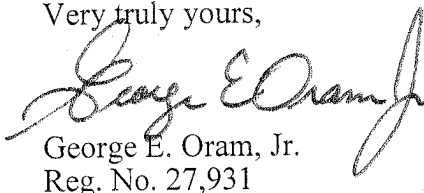 Very truly yours,
George E Oram Jr
George E. Oram, Jr.
Reg. No. 27,931